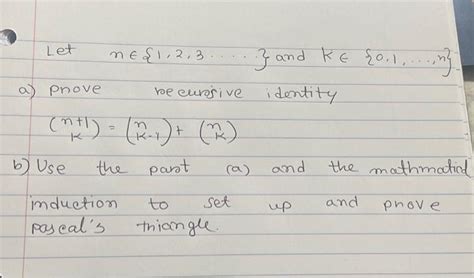 Let n ∈ {1, 2, 3 .....} and k ∈ {0, 1, ..., n}.
a) prove recursive identity
(n+1 k) = (n k-1) + (n k)
b) Use the part (a) and the mathmatical
induction to set up and prove
pascal's triangle.